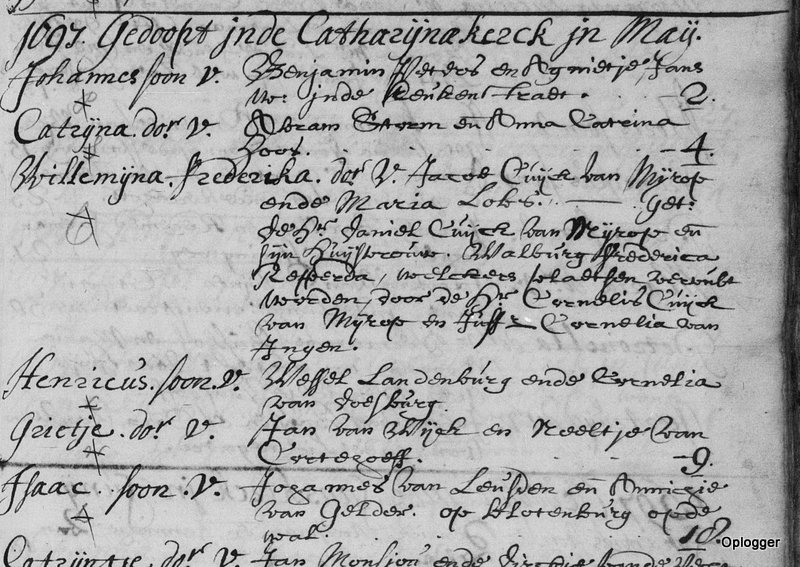 1697. Gedoopt jnde Catharijnakerck jn Maij.
Johannes soon v. Benjamin Peters en Agnietje Jans
w: jnde Keukenstraet. - 2.
Catrijna. dor v. Abram Storm en Anna Catrina
- 4.
Willemijna. frederika. dor v. Jacob Cuijck van Mijrop
ende Maria Lobs. Get:
de Hr. Daniel Cuijck van Mijrop en
sijn Huijsvrouw. Walburg Frederica
welckers plaetsen
worden, door de Hr. Cornelis Cuijck
van Mijrop en Juffr Cornelia van
Jngen.
Henricus. soon. v. Wessel Landenburg ende Cornelia
van Doesburg.
Grietje. dor. v. Jan van Wijck en Neeltje van
- 9.
Jsaac soon. v. Johannes van Leusden en
van Gelder. op Blotenburg op de
wal. 18.
Catrijntje. dor. v. Jan ende
Oplogger